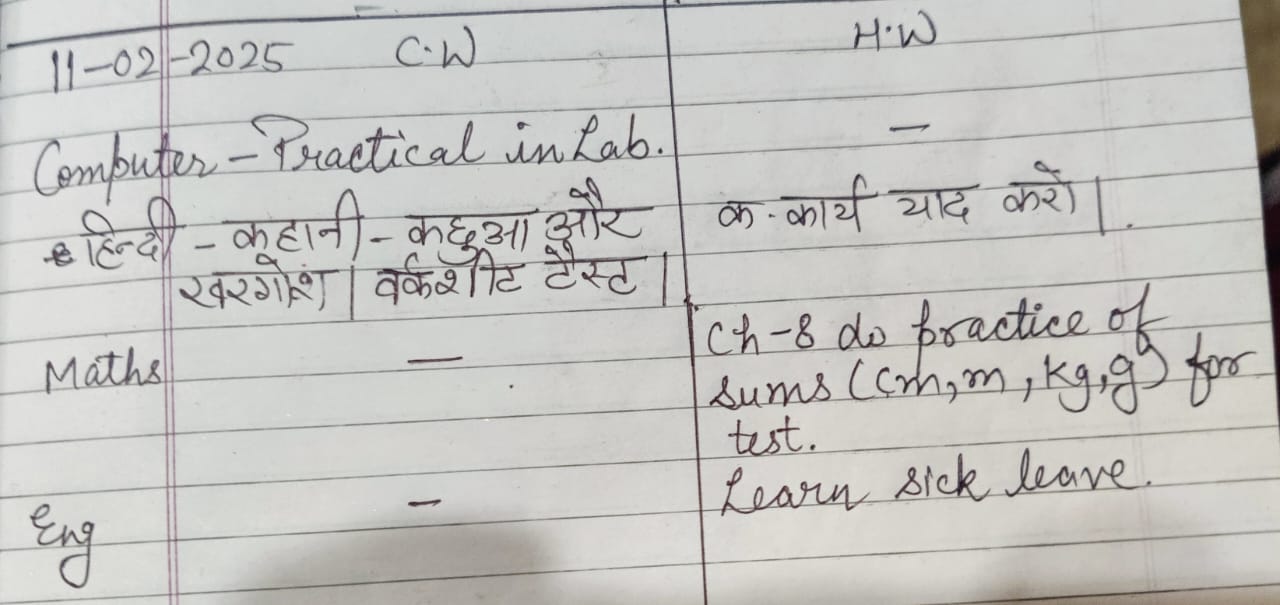 11-02-2025 C.W H.W
Computer - Practical in Lab. —
हिन्दी - कहानी - कछुआ और क. कार्य याद करो।
खरगोश। वर्कशीट टैस्ट।
Ch-8 do practice of
Maths — sums (cm, m, kg, g) for
test.
Eng — Learn sick leave.